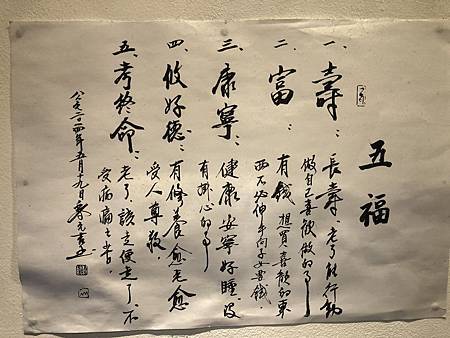 五福
一、壽：長壽、老了能行動
做自己喜歡做的事
二、富：有錢想買喜歡的東
西不必伸手向子女要錢，
三、康寧：健康安寧好睡沒
有掛心的事
四、攸好德：有修養愈老愈
受人尊敬，
五、考終命：老了該走便走了不
受病痛之苦。
公元二〇一四年五月九日